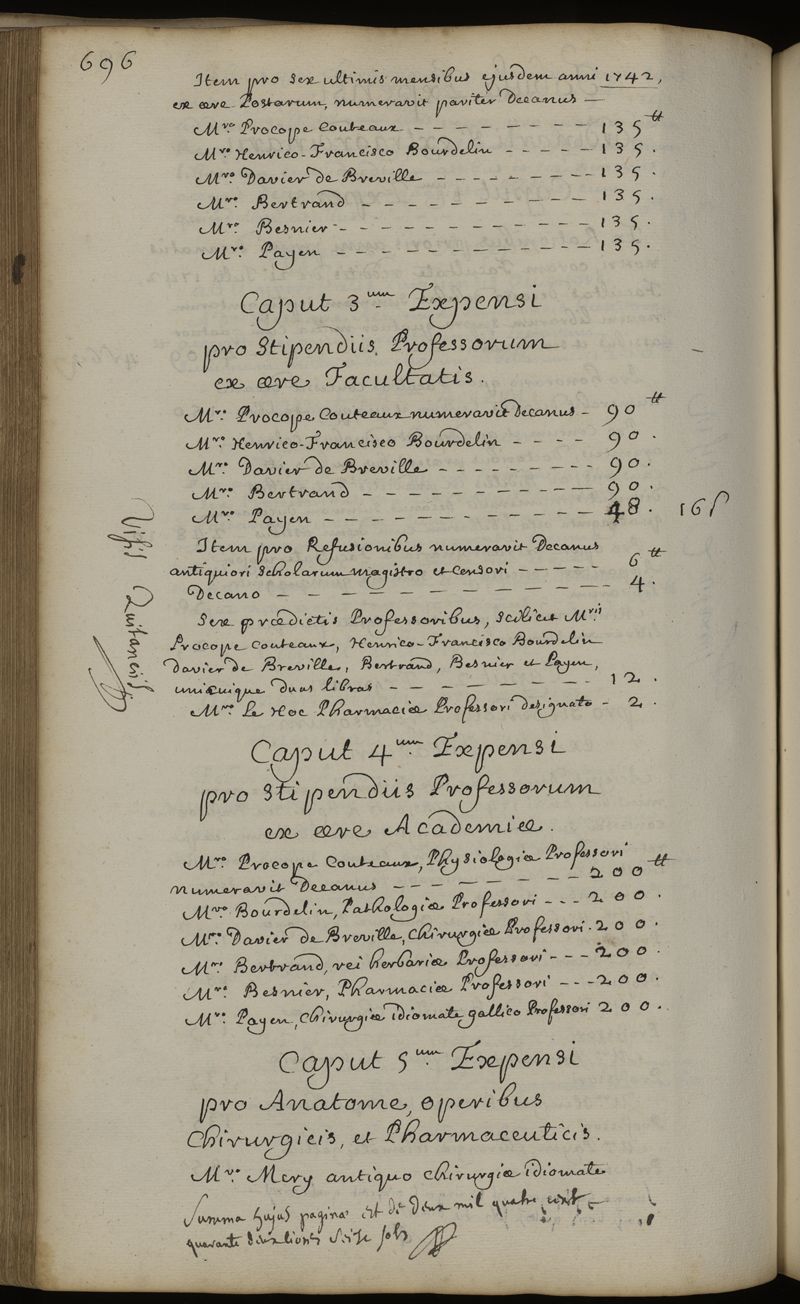 696
Item pro sex ultimis mensibus ejusdem anni 1742,
ex ære Postarum, numeravit pariter Decanus —
Mro. Procope Couteaux - - - - - - - - 135 ₶
Mro. Henrico-Francisco Bourdelin - - - - - 135.
Mro. Davier de Breville - - - - - - - 135.
Mro. Bertrand - - - - - - - - - 135.
Mro. Besnier - - - - - - - - - - 135.
Mro. Payen - - - - - - - - - - 135.
Caput 3um. Expensi
pro Stipendiis Professorum
ex ære Facultatis.
Mro. Procope Couteaux numeravit Decanus - 90 ₶
Mro. Henrico-Francisco Bourdelin - - - - 90.
Mro. Davier de Breville - - - - - - - - 90.
Mro. Bertrand - - - - - - - - - - 90.
Mro. Payen - - - - - - - - - - - 48. 16ſ
Item pro Refusionibus numeravit Decanus
antiquiori Scholarum magistro et Censori - - - - - 6 ₶
Decano - - - - - - - - - - - 4.
Sex prædictis Professoribus, scilicet Mris
Procope Couteaux, Henrico-Francisco Bourdelin
Davier de Breville, Bertrand, Besnier et Payen,
unicuique duas libras - - - - - - - - 12.
Mro. Le Hoc Pharmaciæ Professori designato - 2.
Visis Quitanciis
Caput 4um. Expensi
pro Stipendiis Professorum
ex ære Academiæ.
Mro. Procope Couteaux, Physiologiæ Professori
numeravit Decanus - - - - - - - - 200 ₶
Mro. Bourdelin, Pathologiæ Professori - - - 200.
Mro. Davier de Breville, Chirurgiæ Professori. 200.
Mro. Bertrand, rei herbariæ Professori - - - 200.
Mro. Besnier, Pharmaciæ Professori - - - 200.
Mro. Payen, Chirurgiæ idiomate gallico Professori 200.
Caput 5um. Expensi
pro Anatome, operibus
Chirurgicis, et Pharmaceuticis.
Mro. Mery antiquo Chirurgiæ idiomate
Summa hujus paginæ est de deux mil quatre cent
quarante deux livres seize sols